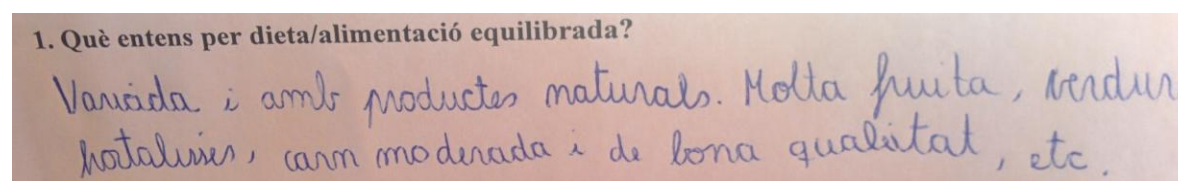 1. Què entens per dieta/alimentació equilibrada?
Variada i amb productes naturals. Molta fruita, verdur
hortalisses, carn moderada i de bona qualitat, etc.